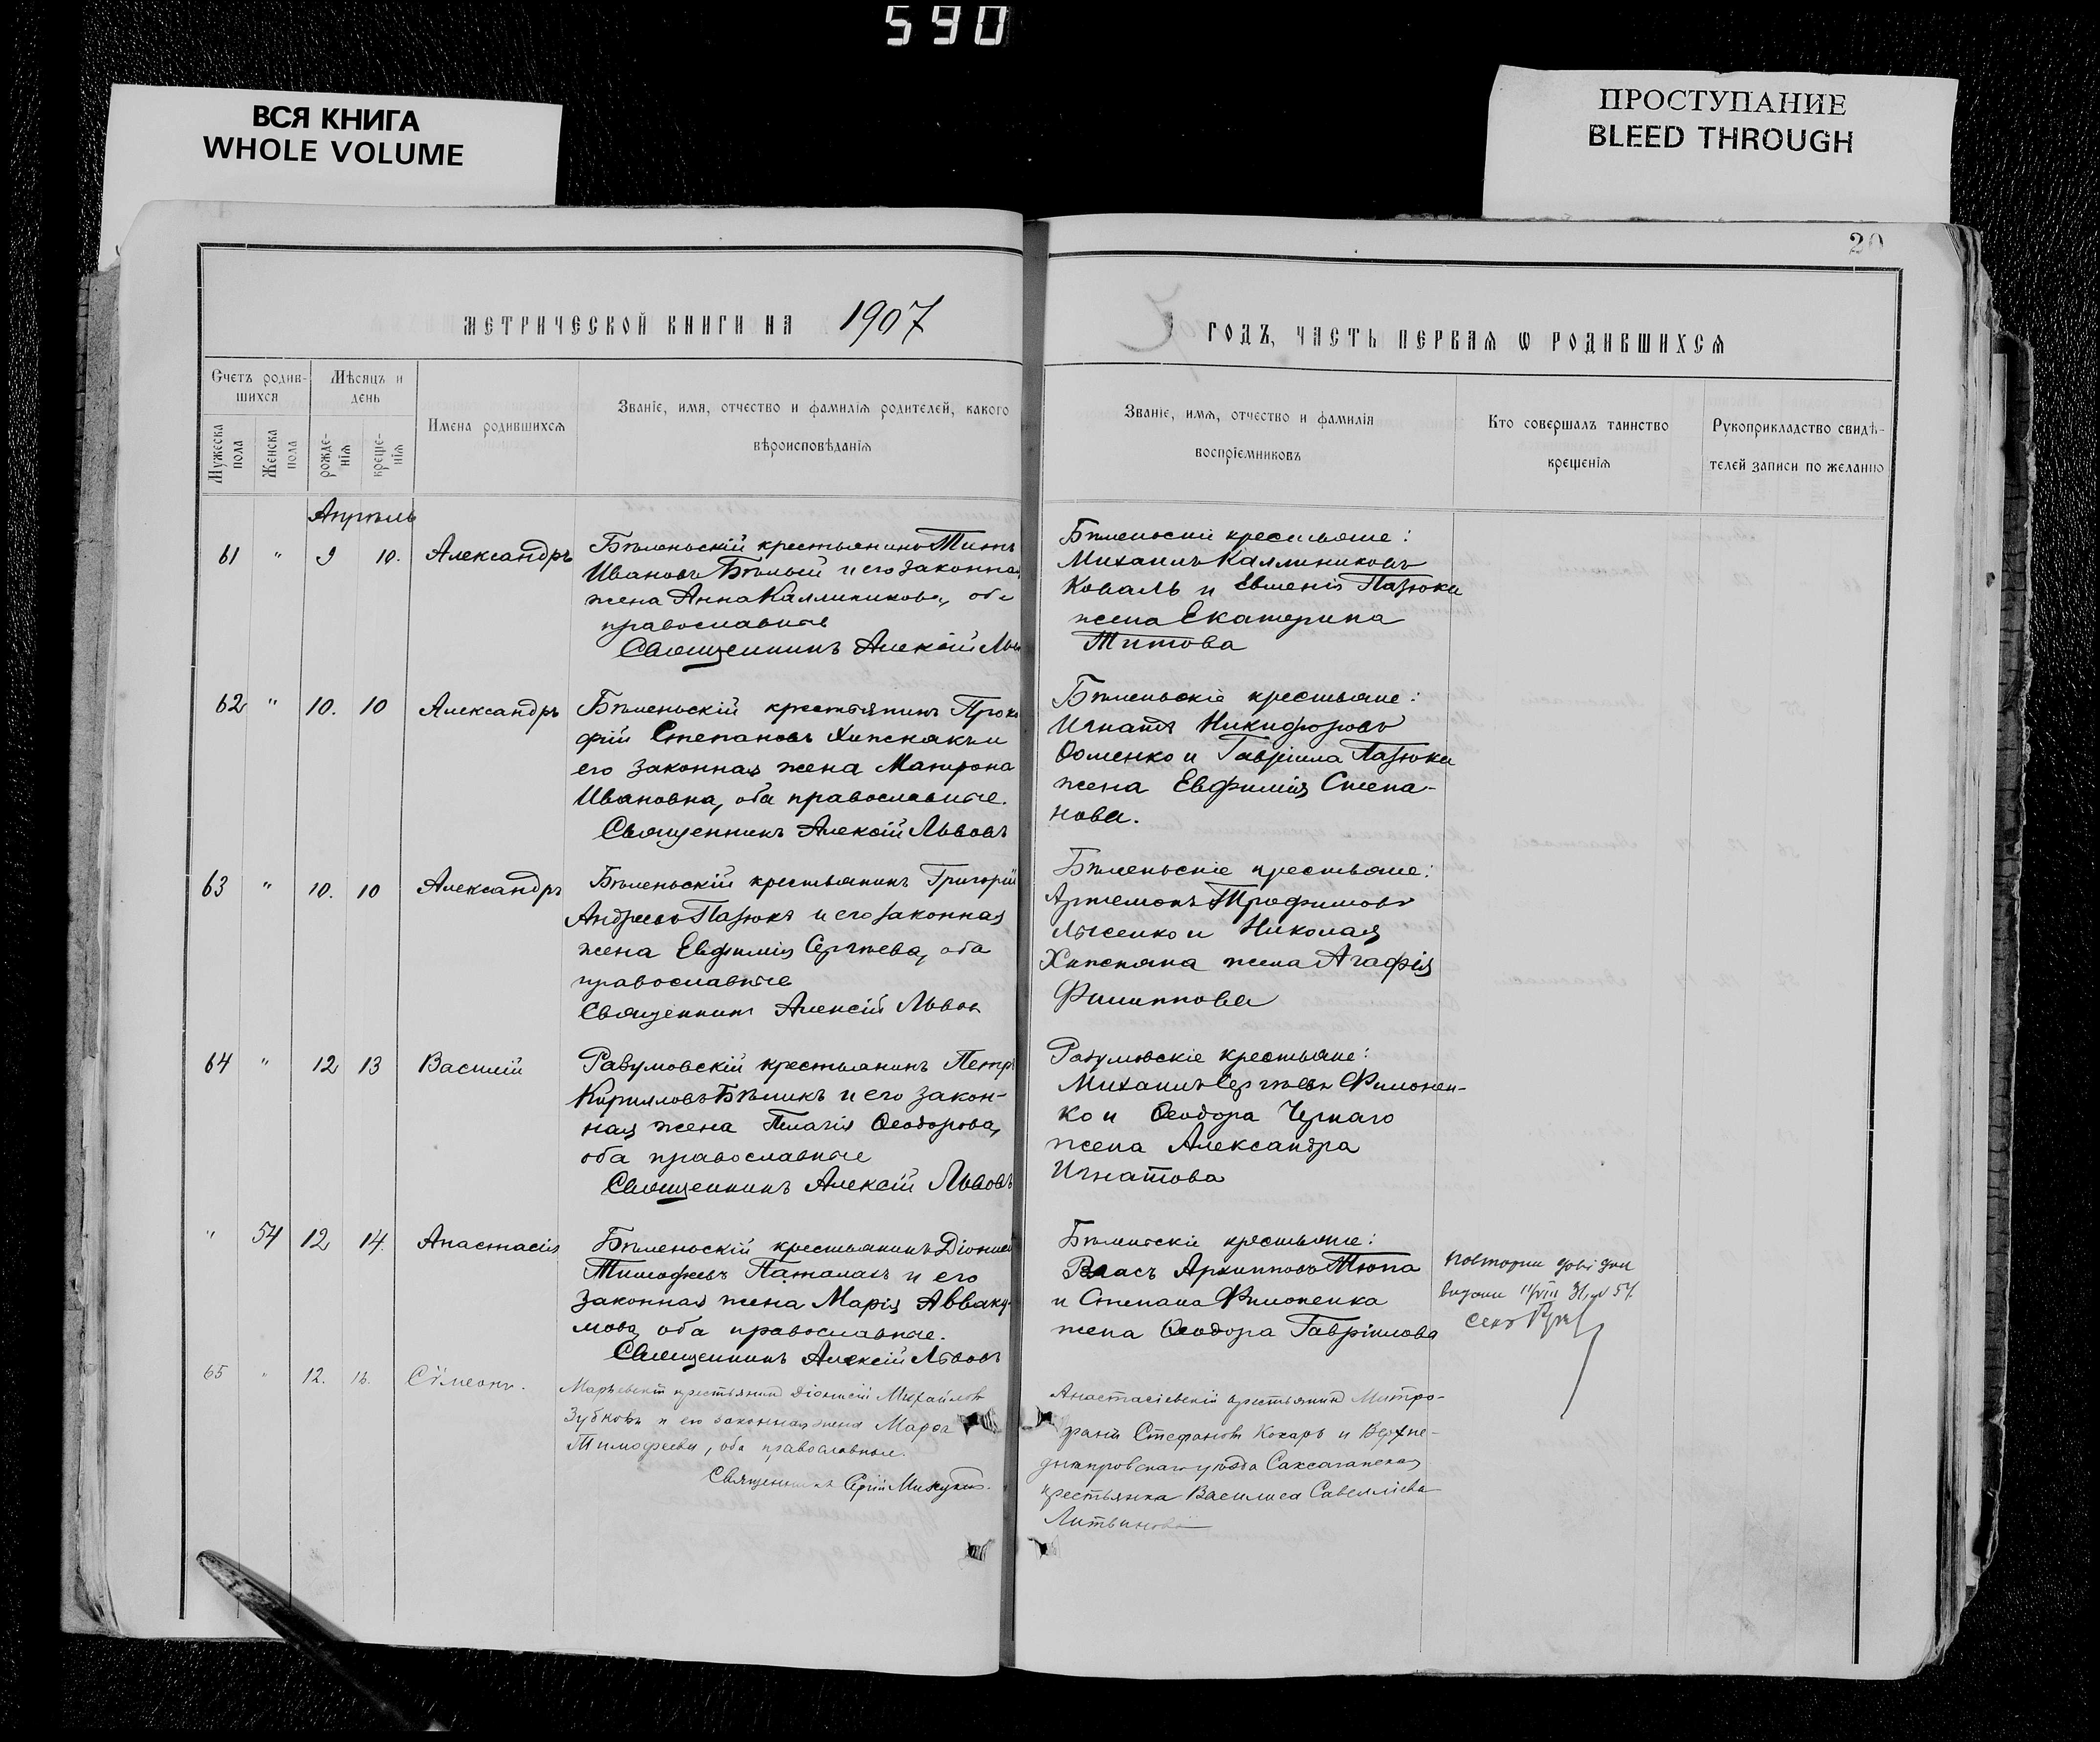 590
ВСЯ КНИГА
WHOLE VOLUME
ПРОСТУПАНИЕ
BLEED THROUGH
20
МЕТРИЧЕСКОЙ КНИГИ НА 1907
ГОДЪ, ЧАСТЬ ПЕРВАЯ Ѡ РОДИВШИХСЯ
Счетъ родив-
шихся
Мѣсяцъ и
день
Мужеска
пола
Женска
пола
рожде-
нія
креще-
нія
Имена родившихся
Званіе, имя, отчество и фамилія родителей, какого
вѣроисповѣданія
Званіе, имя, отчество и фамилія
воспріемниковъ
Кто совершалъ таинство
крещенія
Рукоприкладство свидѣ-
телей записи по желанію
Апрѣль
61 " 9 10. Александръ
Бѣленьскій крестьянинъ Титъ
Ивановъ Бѣлый и его законная
жена Анна Каллиникова, оба
православные
Священникъ Алексій
Бѣленьскіе крестьяне:
Михаилъ Каллиниковъ
Коваль и Евменія Пазюка
жена Екатерина
Титова
62 " 10. 10 Александръ
Бѣленьскій крестьянинъ Проко
фій Степановъ Хижнякъ и
его законная жена Матрона
Ивановна, оба православные.
Священникъ Алексій Львовъ
Бѣленьскіе крестьяне:
Игнатъ Никифоровъ
Ѳоменко и Гавріила Пазюка
жена Евфимія Степа-
нова.
63 " 10. 10 Александръ
Бѣленьскій крестьянинъ Григорій
Андреевъ Пазюкъ и его законная
жена Евфимія Сергѣева, оба
православные
Священникъ Алексій Львовъ
Бѣленьскіе крестьяне:
Артемонъ Трофимовъ
Лысенко и Николая
Хижняка жена Агафія
Филиппова
64 " 12 13 Василій
Разумовскій крестьянинъ Петръ
Кирилловъ Бѣликъ и его закон-
ная жена Пелагія Ѳеодорова,
оба православные
Священникъ Алексій Львовъ
Разумовскіе крестьяне:
Михаилъ Сергѣевъ Филонен-
ко и Ѳеодора Чернаго
жена Александра
Игнатова
" 54 12 14. Анастасія
Бѣленьскій крестьянинъ Діонисій
Тимофеевъ Паталахъ и его
законная жена Марія Авваку-
мова, оба православные.
Священникъ Алексій Львовъ
Бѣленьскіе крестьяне:
Власъ Архипповъ Тюпа
и Степана Филоненка
жена Ѳеодора Гавріилова
65 " 12. 16. Сѷмеонъ.
Марьевскій крестьянинъ Діонисій Михайловъ
Зубковъ и его законная жена Марѳа
Тимофеева, оба православные.
Священникъ Сергій
Анастасіевскій крестьянинъ Митро-
фанъ Стефановъ Кохаръ и Верхне-
днѣпровскаго уѣзда Саксаганская
крестьянка Василиса Савелліева
Литвинова